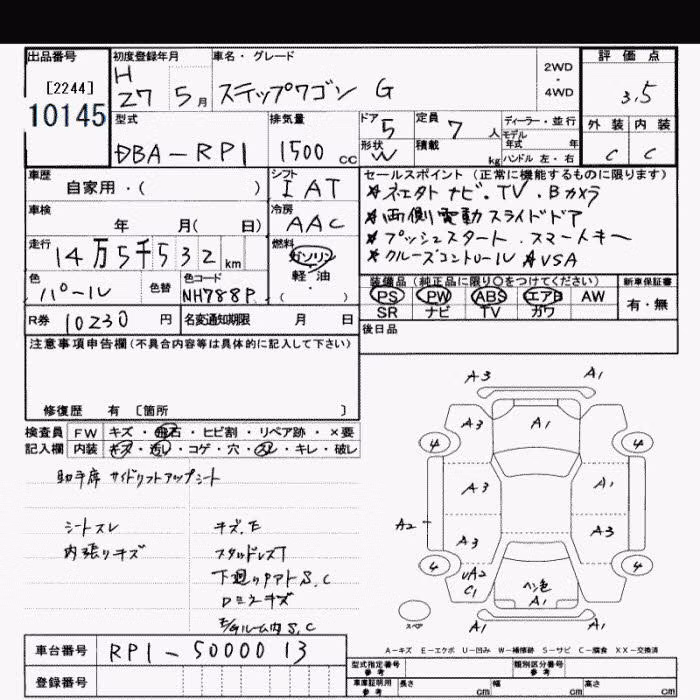 出品番号 初度登録年月 車名・グレード 評価点
[2244] H 27 5月 ステップワゴン G 2WD・4WD 3.5
10145 型式 排気量 ドア 5 定員 7人 ディーラー・並行 外装 内装
DBA-RP1 1500cc 形状 W 積載 kg モデル年式 年 ハンドル 左・右 C C
車歴 自家用・( ) シフト IAT セールスポイント(正常に機能するものに限ります)
車検 年 月( 日) 冷房 AAC ナビ・TV・Bカメラ
*両側電動スライドドア
走行 14万5千532km 燃料 ガソリン *プッシュスタート.スマートキー
軽・油 ( ) *クルーズコントロール *VSA
色 パール 色替 色コード NH788P 装備品(純正品に限り○をつけてください) 新車保証書
PS PW ABS エアB AW 有・無
SR ナビ TV カワ
R券 10230円 名変通知期限 月 日 後日品
注意事項申告欄(不具合内容等は具体的に記入して下さい)
修復歴 有 〔箇所 〕
検査員 FW キズ・飛石・ヒビ割・リペア跡・×要
記入欄 内装 キズ・汚し・コゲ・穴・スレ・キレ・破レ
助手席 サイドリフトアップシート
シートスレ キズ.E
内張りキズ スタッドレスT
下廻り S.C
キズ
ルーム内S.C
A3 A1
A3 A1 A1
4 4
A3 A1
A2 A3 A3
4 4
UA2 C1 ヘン色 A1
スペア
A1 A1
A-キズ E-エクボ U-凹み W-補修跡 S-サビ C-腐食 XX-交換済
車台番号 RP1-5000013
登録番号
型式指定番号 参考 類別区分番号 参考
車庫証明用 参考 長さ cm 幅 cm 高さ cm